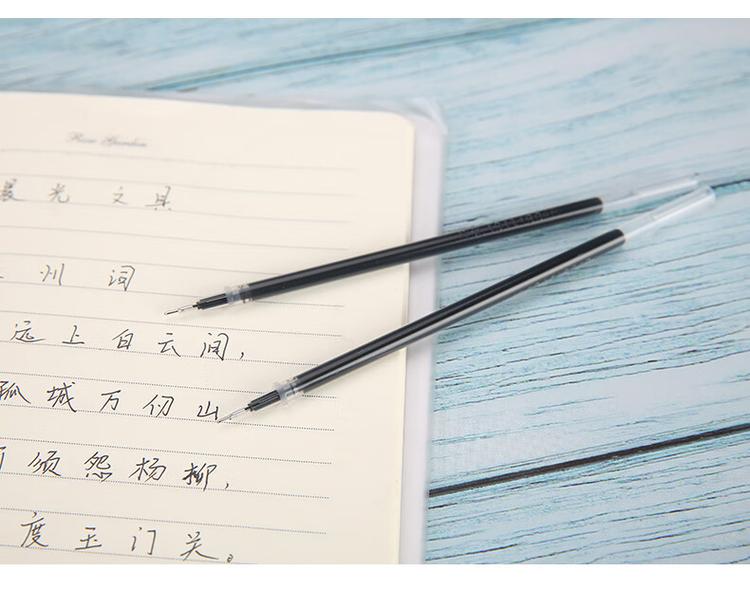 Rose Garden
晨光 文具
州词
远上白云间，
孤城万仞山
须怨杨柳，
度玉门关。